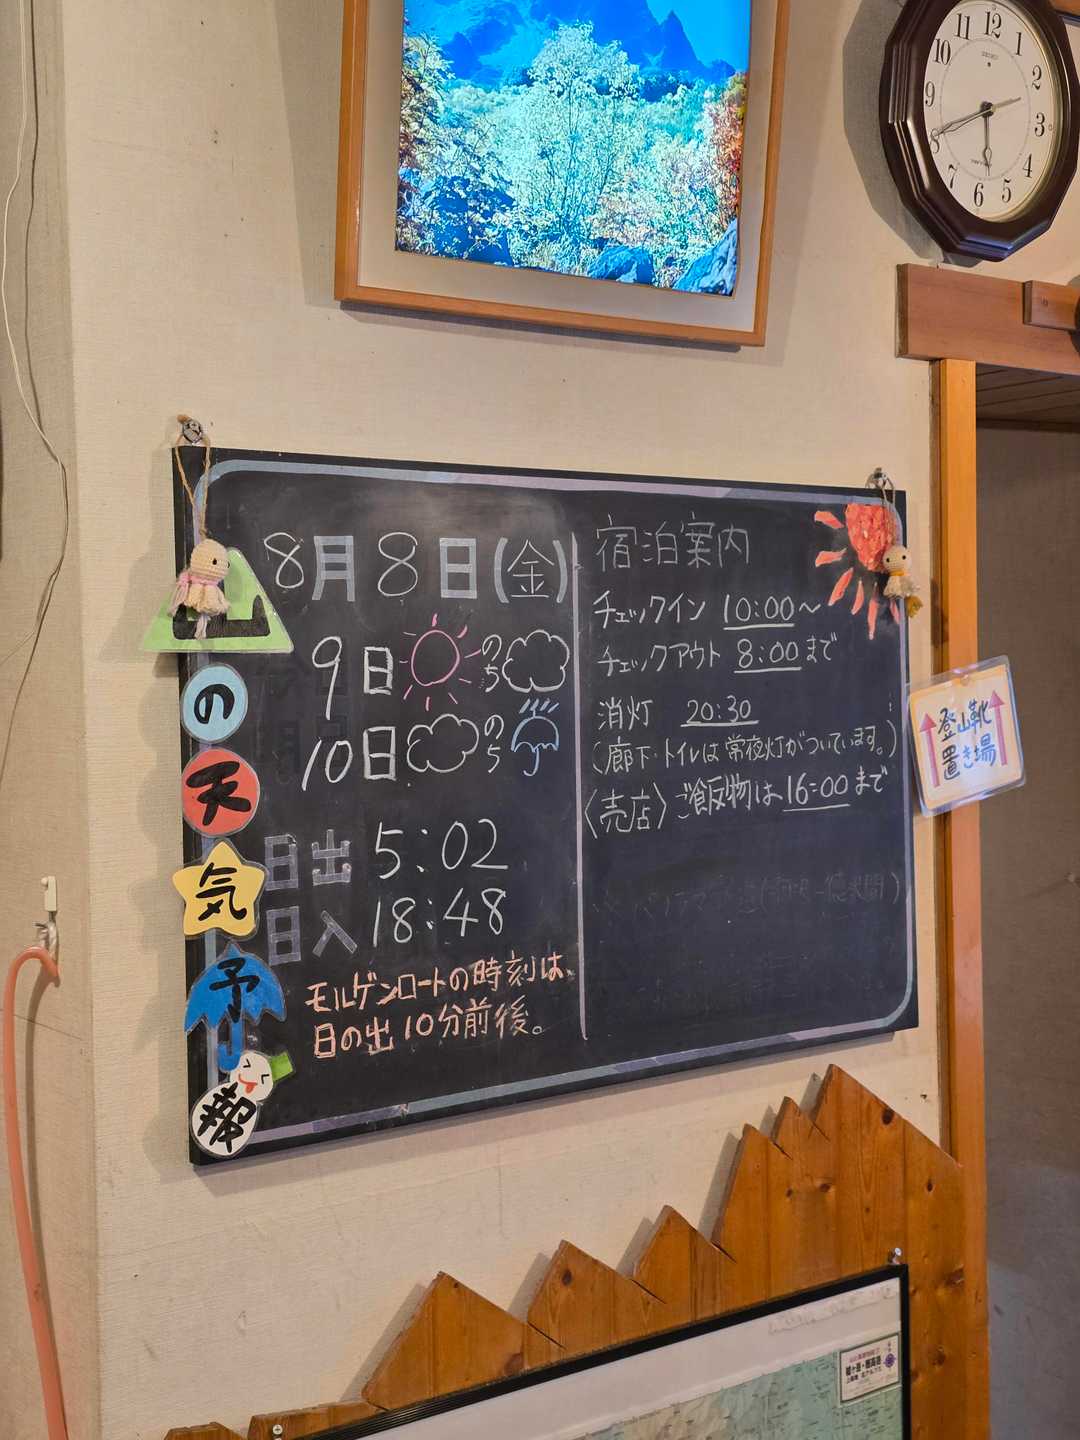 12
1
2
3
4
5
6
7
8
9
10
11
SEIKO
山の天気予報
8月8日(金)
9日 のち
10日 のち
日出 5:02
日入 18:48
モルゲンロートの時刻は、
日の出10分前後。
宿泊案内
チェックイン 10:00～
チェックアウト 8:00まで
消灯 20:30
(廊下・トイレは常夜灯がついています。)
〈売店〉ご飯物は16:00まで
登山靴
置き場